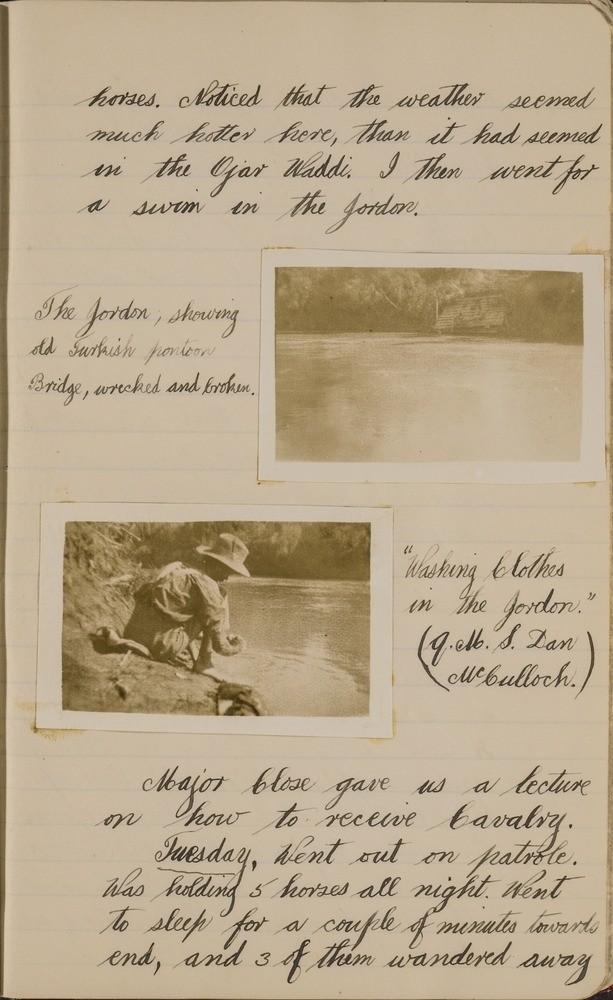 horses. Noticed that the weather seemed
much hotter here, than it had seemed
in the Ojar Waddi. I then went for
a swim in the Jordon.
The Jordon, showing
old Turkish pontoon
Bridge, wrecked and broken.
"Washing Clothes
in the Jordon."
(Q.M.S. Dan
McCulloch.)
Major Close gave us a lecture
on how to receive Cavalry.
Tuesday, Went out on patrole.
Was holding 5 horses all night. Went
to sleep for a couple of minutes towards
end, and 3 of them wandered away